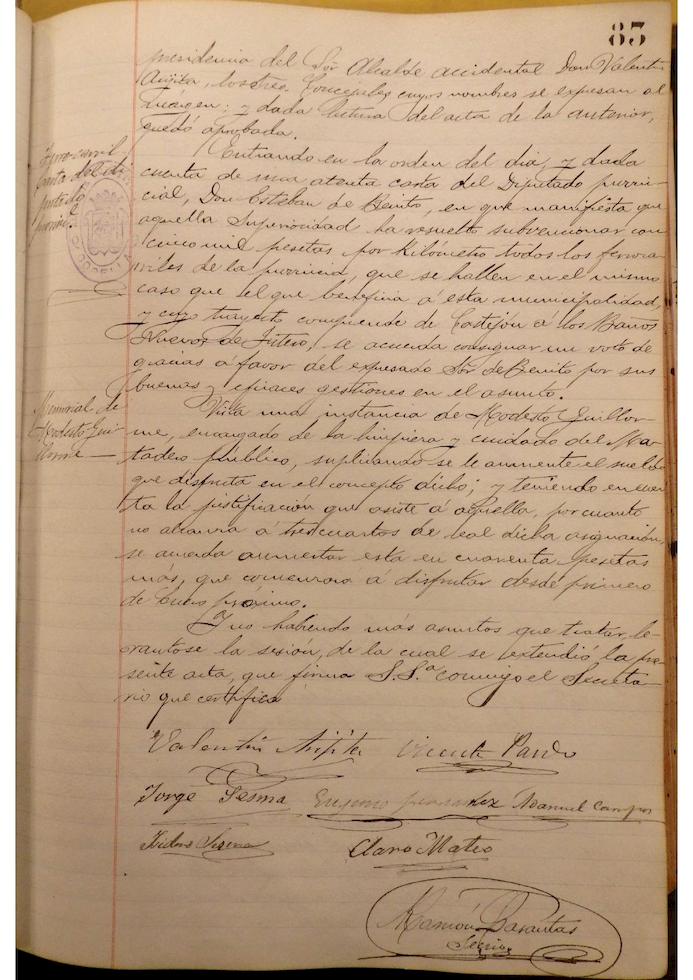 85
presidencia del Sor Alcalde accidental Don Valentin
los Sres. Concejales cuyos nombres se expresan al
márgen: y dada lectura del acta de la anterior,
quedó aprobada.
Entrando en la orden del dia, y dada
cuenta de una atenta carta del Diputado provin-
cial, Don Esteban de Benito, en que manifiesta que
aquella Superioridad ha resuelto subvencionar con
cinco mil pesetas por Kilómetro todos los ferroca-
rriles de la provincia, que se hallen en el mismo
caso que el que beneficia á esta municipalidad,
y cuyo trayecto comprende de Castejón á los Baños
Nuevos de Fitero, se acuerda consignar un voto de
gracias á favor del expresado Sor de Benito por sus
buenas y eficaces gestiones en el asunto.
Memorial de
Modesto Gui-
llorme
Vista una instancia de Modesto Guillor-
me, encargado de la limpieza y cuidado del Ma-
tadero público, suplicando se le aumente el sueldo
que disfruta en el concepto dicho; y teniendo en cuen-
ta la justificación que asiste á aquella, por cuanto
no alcanza á tres cuartos de real dicha asignación,
se acuerda aumentar esta en cuarenta pesetas
más, que comenzará á disfrutar desde primero
de Enero próximo.
Y no habiendo más asuntos que tratar, le-
vantóse la sesión, de la cual se extendió la pre-
sente acta, que firma S.S.ª conmigo el Secreta-
rio que certifico
Valentin Vicente Pardo
Jorge Sesma Eugenio Fernandez Manuel Campos
Isidro Claro Mateo
Ramón Barantas
Secrio